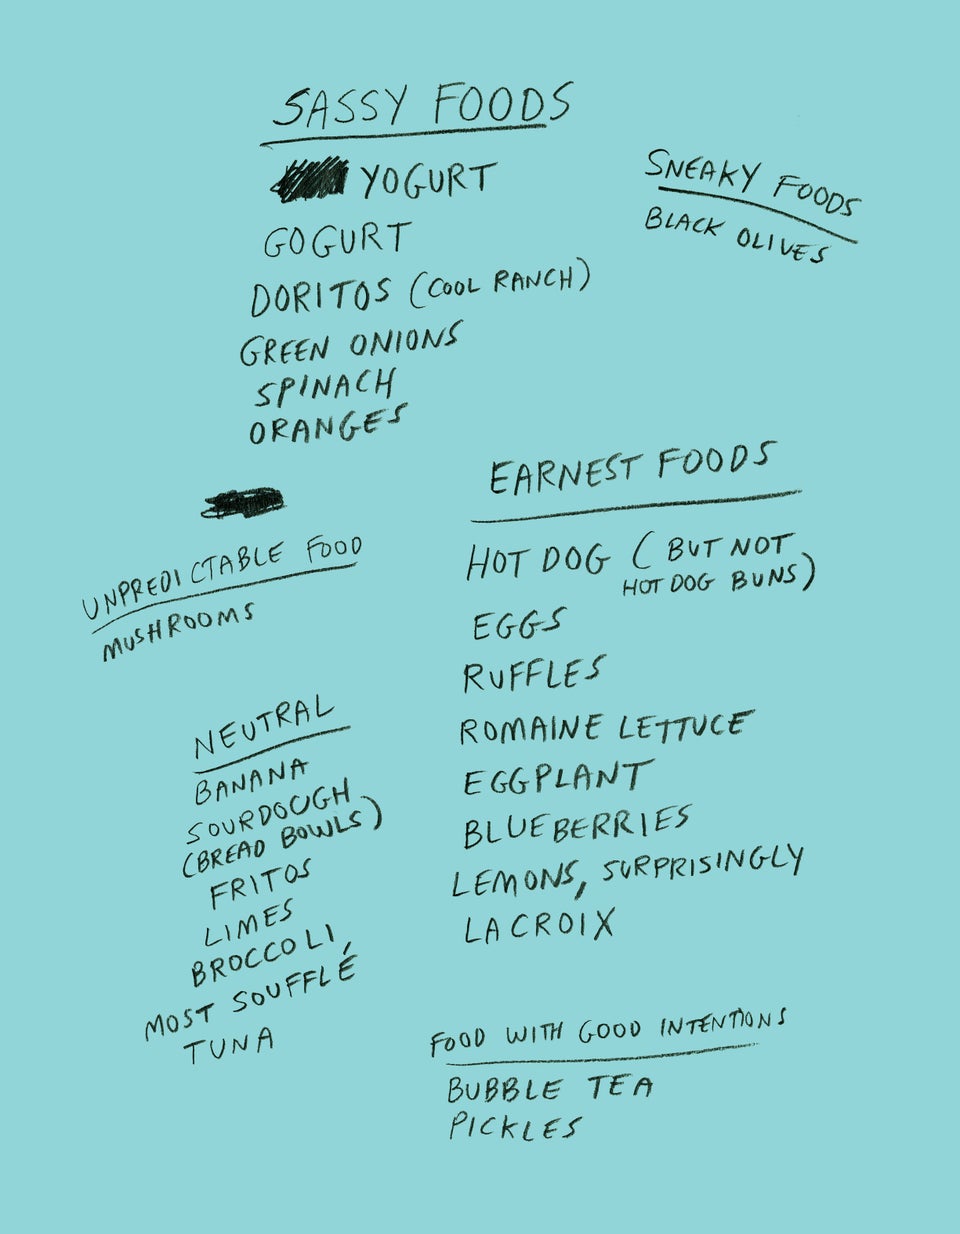 SASSY FOODS
YOGURT
GOGURT
DORITOS (COOL RANCH)
GREEN ONIONS
SPINACH
ORANGES
SNEAKY FOODS
BLACK OLIVES
UNPREDICTABLE FOOD
MUSHROOMS
EARNEST FOODS
HOT DOG (BUT NOT
HOT DOG BUNS)
EGGS
RUFFLES
ROMAINE LETTUCE
EGGPLANT
BLUEBERRIES
LEMONS, SURPRISINGLY
LACROIX
NEUTRAL
BANANA
SOURDOUGH
(BREAD BOWLS)
FRITOS
LIMES
BROCCOLI
MOST SOUFFLÉ
TUNA
FOOD WITH GOOD INTENTIONS
BUBBLE TEA
PICKLES